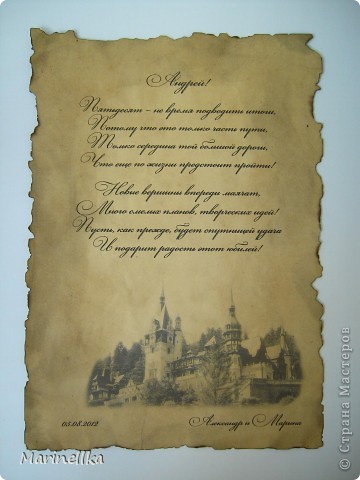 Андрей!
Пятьдесят – не время подводить итоги,
Потому что это только часть пути,
Только середина той большой дороги,
Что еще по жизни предстоит пройти!
Новые вершины впереди маячат,
Много смелых планов, творческих идей!
Пусть, как прежде, будет спутницей удача
И подарит радость этот юбилей!
03.08.2012
Александр и Марина
Marinellka
© Страна Мастеров